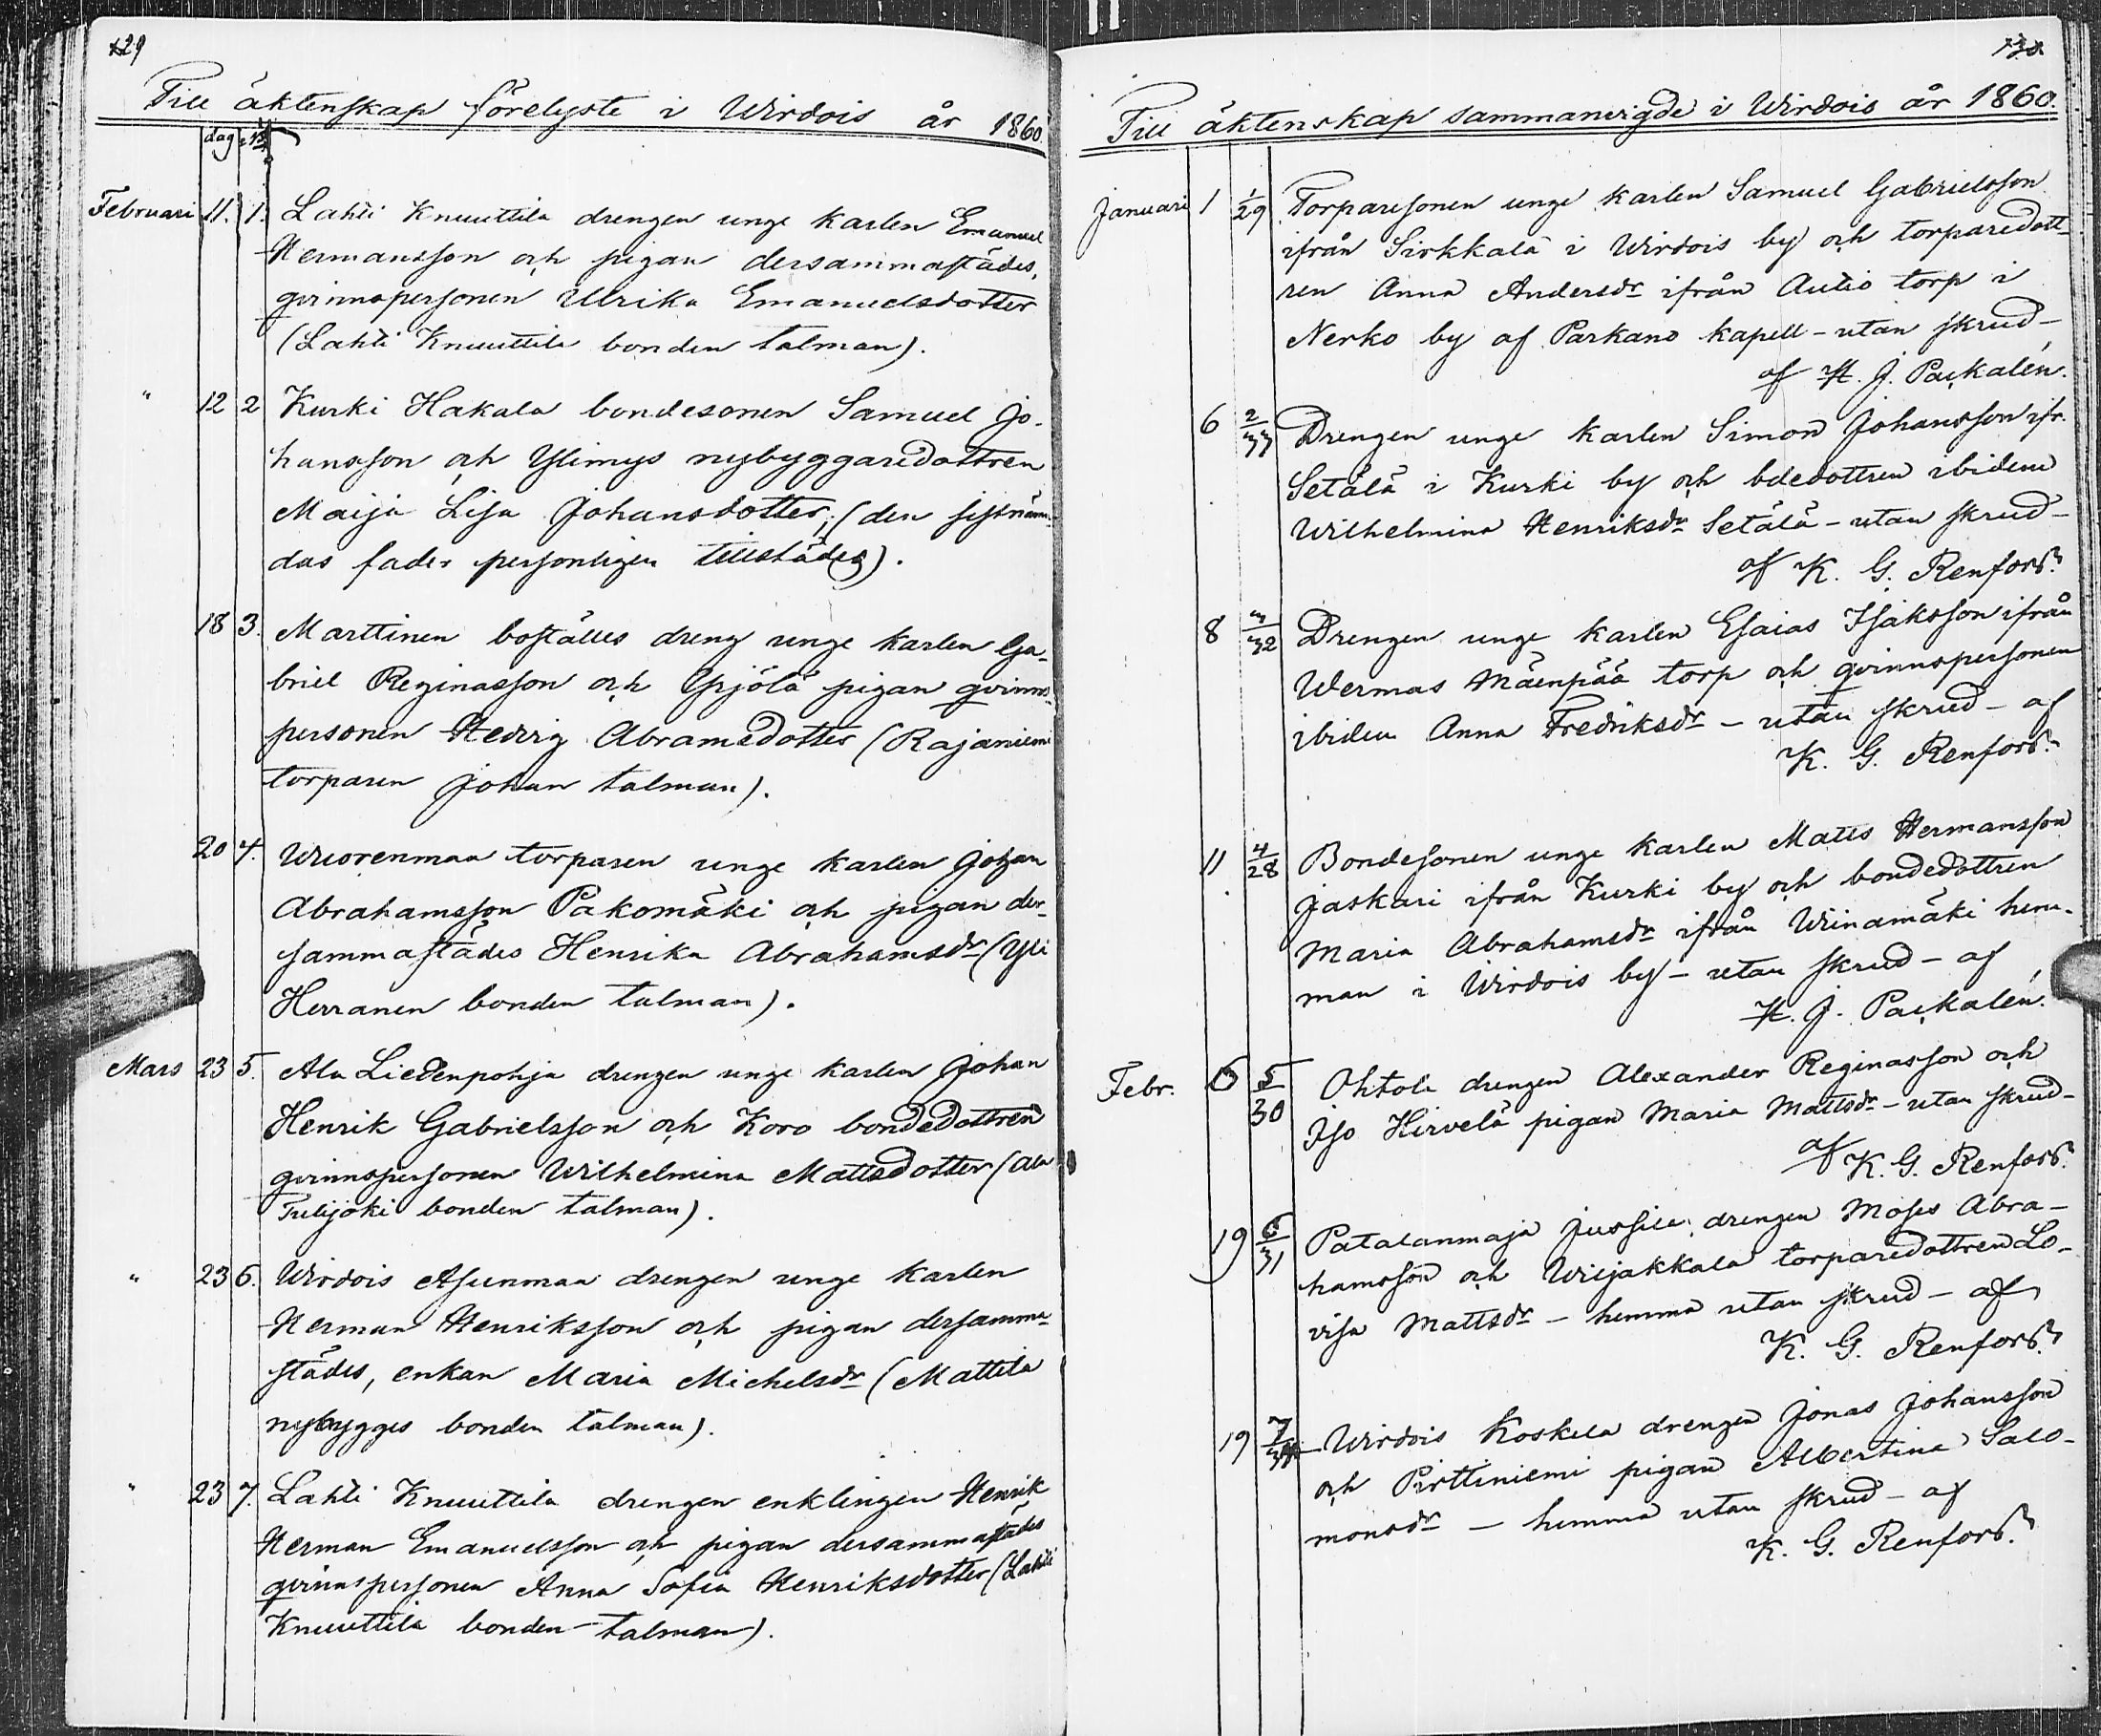 129
Till äktenskap förelyste i Wirdois år 1860.
dag No
Februari 11. 1. Lahti Knuuttila drengen unge karlen Emanuel
Hermansson och pigan dersammastädes,
qvinnspersonen Ulrika Emanuelsdotter
(Lahti Knuuttila bonden talman).
" 12 2 Kurki Hakala bondesonen Samuel Jo-
hansson och Ylimys nybyggaredottren
Maija Lisa Johansdotter, (den sistnämn-
das fader personligen tillstädes).
18 3. Marttinen boställes dreng unge karlen Ga-
briel Reginasson och Yrjölä pigan qvinns-
personen Hedvig Abramsdotter (Rajaniemi
torparen Johan talman).
20 4. Wuorenmaa torparen unge karlen Johan
Abrahamsson Pakomäki och pigan der-
sammastädes Henrika Abrahamsdr (Yli
Herranen bonden talman).
Mars 23 5. Ala Liedenpohja drengen unge karlen Johan
Henrik Gabrielsson och Koro bondedottren
qvinnspersonen Wilhelmina Mattsdotter (Ala
Tulijoki bonden talman).
" 23 6. Wirdois Asunmaa drengen unge karlen
Herman Henriksson och pigan dersamma-
städes, enkan Maria Michelsdr (Mattila
nybygges bonden talman).
" 23 7. Lahti Knuuttila drengen enklingen Henrik
Herman Emanuelsson och pigan dersammastädes
qvinnspersonen Anna Sofia Henriksdotter (Lahti
Knuuttila bonden talman).
130
Till äktenskap sammanvigde i Wirdois år 1860.
Januari 1 1/29 Torparesonen unge karlen Samuel Gabrielsson
ifrån Sirkkala i Wirdois by och torparedott-
ren Anna Andersdr ifrån Autio torp i
Nerko by af Parkano kapell - utan skrud -
af H. J. Packalén.
6 2/33 Drengen unge karlen Simon Johansson ifr.
Setälä i Kurki by och bdedottren ibidem
Wilhelmina Henriksdr Setälä - utan skrud -
af K. G. Renfors.
8 3/32 Drengen unge karlen Esaias Isaksson ifrån
Wermas Mäenpää torp och qvinnspersonen
ibidem Anna Fredriksdr - utan skrud - af
K. G. Renfors.
11 4/28 Bondesonen unge karlen Matts Hermansson
Jaskari ifrån Kurki by och bondedottren
Maria Abrahamsdr ifrån Wiinamäki hem-
man i Wirdois by - utan skrud - af
H. J. Packalén.
Febr. 6 5/30 Ohtola drengen Alexander Reginasson och
Iso Hirvelä pigan Maria Mattsdr - utan skrud -
af K. G. Renfors.
19 6/31 Patalanmaja Jussila drengen Moses Abra-
hamsson och Wiljakkala torparedottren Lo-
visa Mattsdr - hemma utan skrud - af
K. G. Renfors.
19 7 Wirdois Koskela drengen Jonas Johansson
och Pirttiniemi pigan Albertina Salo-
monsdr - hemma utan skrud - af
K. G. Renfors.